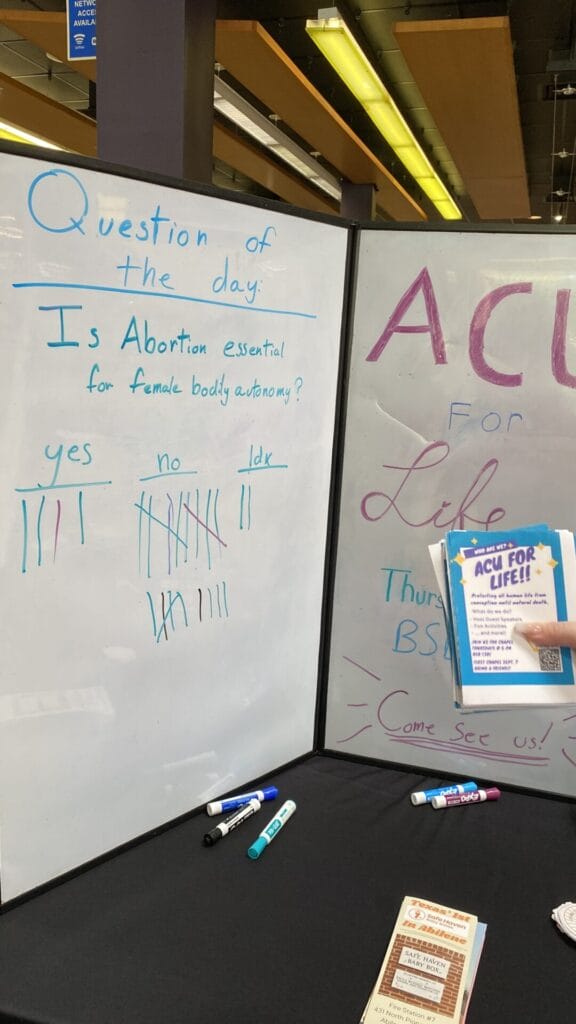 NETWO
ACCES
AVAILA
Question of
the day:
Is Abortion essential
for female bodily autonomy?
yes
no
Idk
ACU
For
Life
Thurs
BS
Come see us!
WHO ARE WE?
ACU FOR
LIFE!!
Protecting all human life from
conception until natural death.
What do we do?
Host Guest Speakers
Fun Activities
... and more!
JOIN US FOR CHAPEL
THURSDAYS @
FIRST CHAPEL SEPT. 7
BRING A FRIEND!!
EXPO
Texas' 1st
Safe Haven
in Abilene
SAFE HAVEN
BABY BOX
Fire Station #7
431 North Pio
Abi